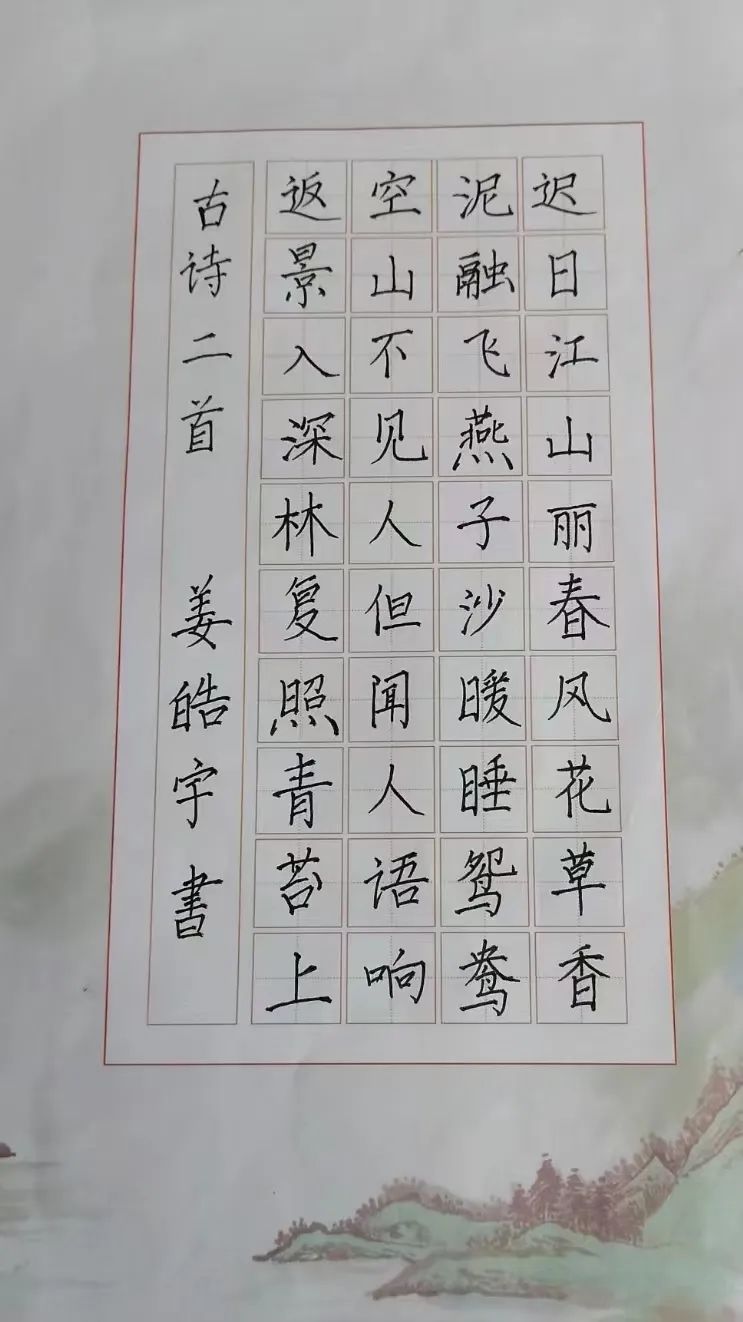 迟日江山丽春风花草香
泥融飞燕子沙暖睡鸳鸯
空山不见人但闻人语响
返景入深林复照青苔上
古诗二首 姜皓宇書